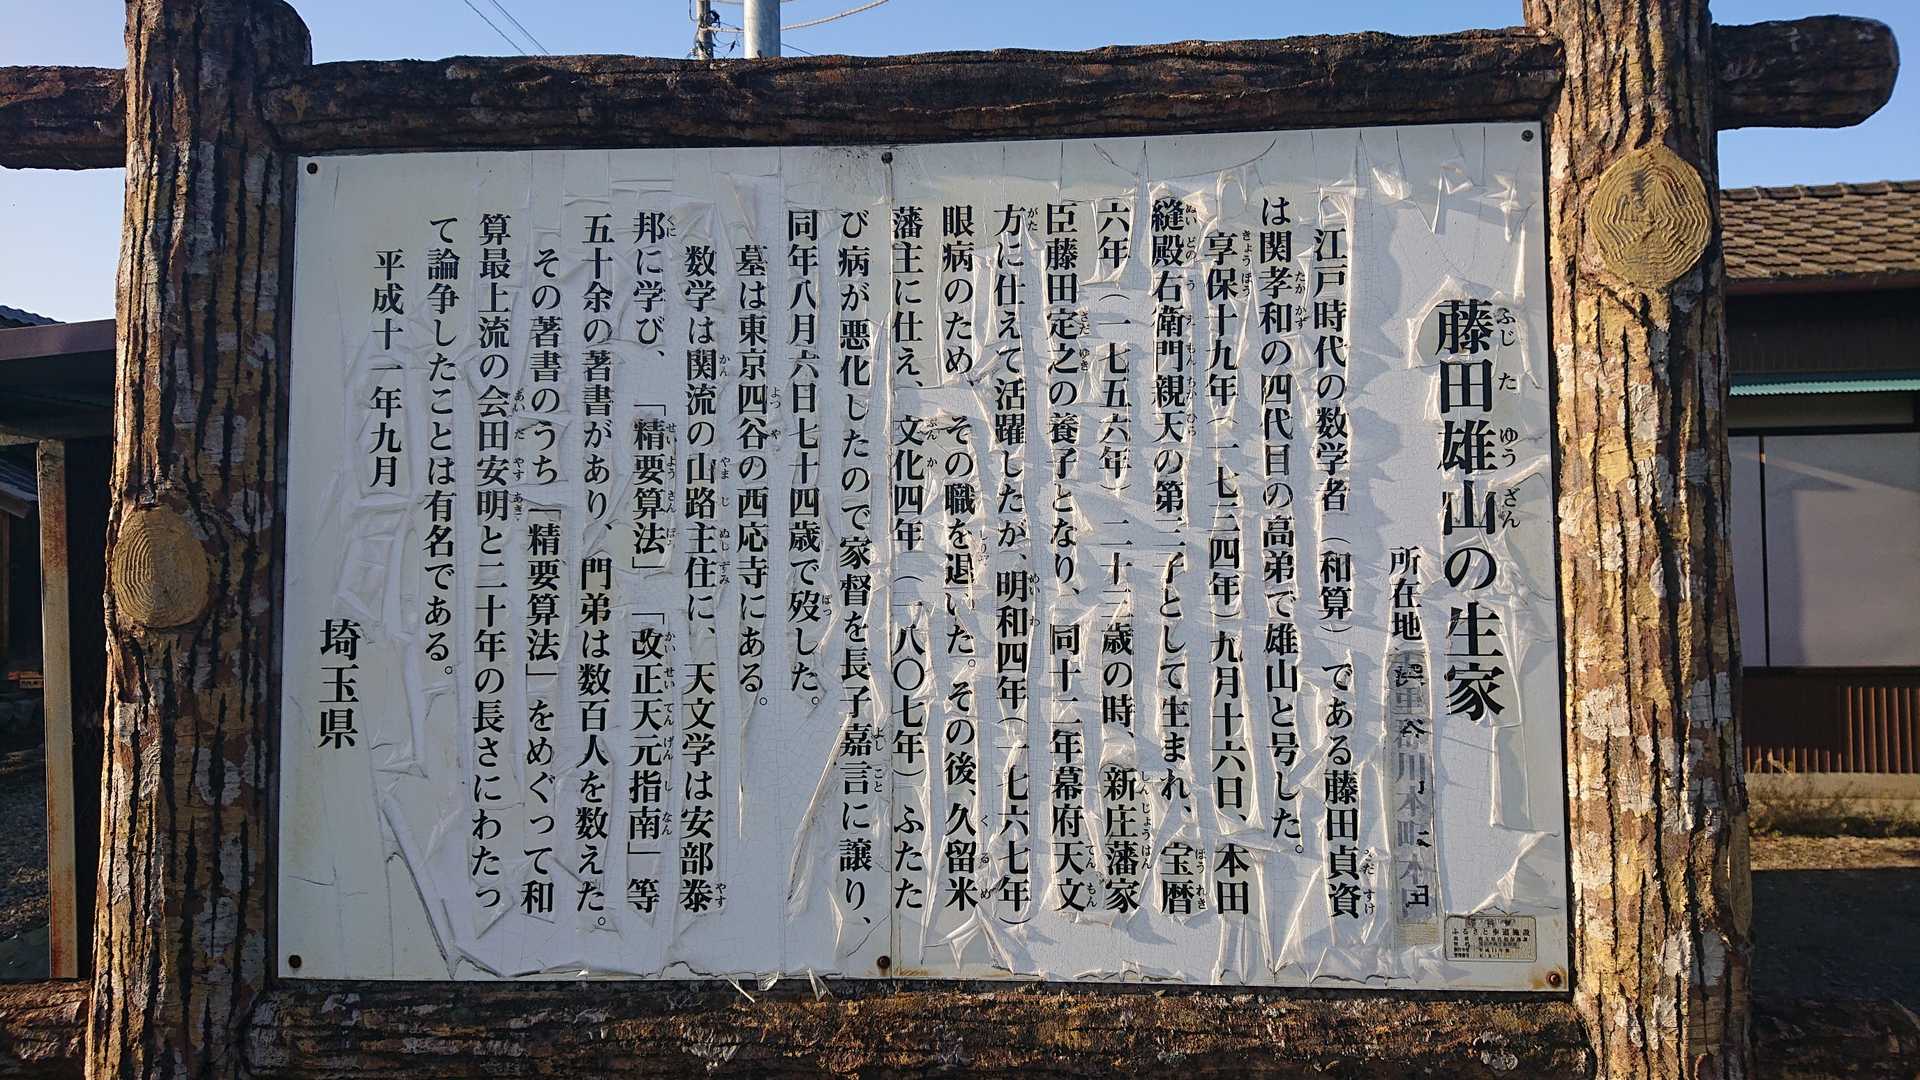 藤田雄山の生家
所在地
江戸時代の数学者（和算）である藤田貞資
は関孝和の四代目の高弟で雄山と号した。
享保十九年（一七三四年）九月十六日、本田
縫殿右衛門親天の第三子として生まれ、宝暦
六年（一七五六年）二十三歳の時、新庄藩家
臣藤田定之の養子となり、同十二年幕府天文
方に仕えて活躍したが、明和四年（一七六七年）
眼病のため、その職を退いた。その後、久留米
藩主に仕え、文化四年（一八〇七年）ふたた
び病が悪化したので家督を長子嘉言に譲り、
同年八月六日七十四歳で歿した。
墓は東京四谷の西応寺にある。
数学は関流の山路主住に、天文学は安部泰
邦に学び、「精要算法」「改正天元指南」等
五十余の著書があり、門弟は数百人を数えた。
その著書のうち「精要算法」をめぐって和
算最上流の会田安明と二十年の長さにわたっ
て論争したことは有名である。
平成十一年九月
埼玉県
ふるさと歩道施設